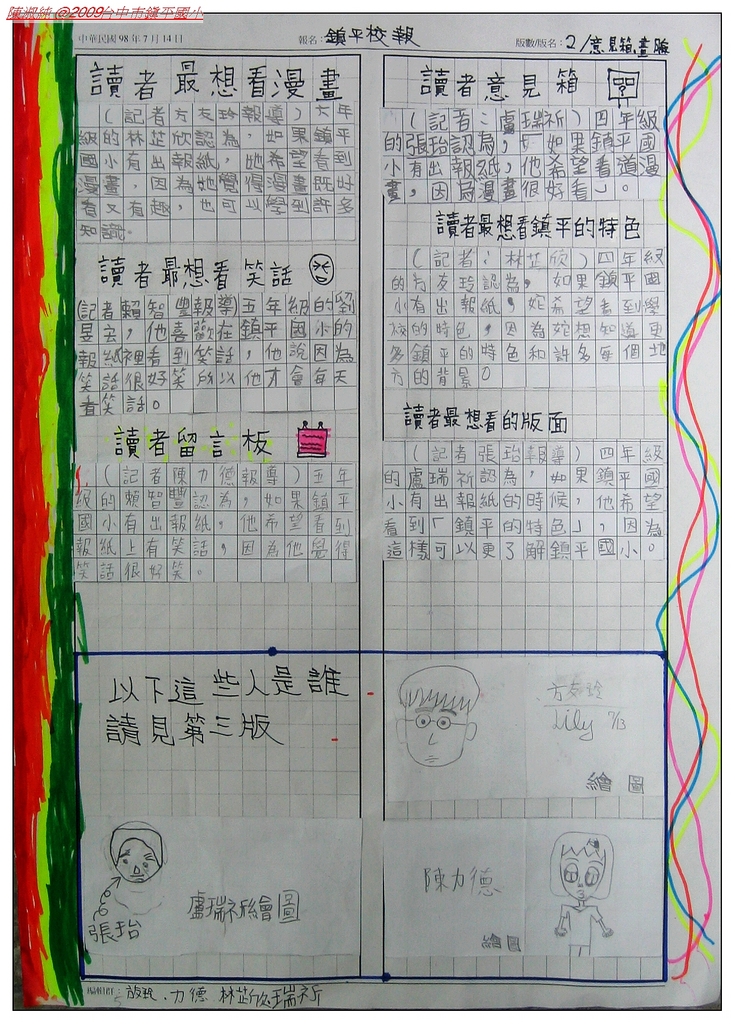 陳淑純 @2009台中市鎮平國小
中華民國 98 年 7 月 14 日
報名：鎮平校報
版數/版名：2/意見箱畫臉
讀者最想看漫畫
（記者方友玲報導）六年
級的林芷欣認為，如果鎮平
國小有出報紙，她希望看到
漫畫，因為她覺得漫畫既好
看又有趣，也可以學到許多
知識。
讀者最想看笑話
（記者賴智豐報導）五年級的劉
昱宏，他喜歡在鎮平國小的
報紙裡看到笑話，他說因為
笑話很好笑所以他才會每天
看笑話。
讀者留言板
（記者陳力德報導）五年
級的賴智豐認為，如果鎮平
國小有出報紙，他希望看到
報紙上有笑話，因為他覺得
笑話很好笑。
讀者意見箱
（記者：盧瑞祈）四年級
的張珆認為，如果鎮平國
小有出報紙，他希望看道漫
畫，因為漫畫很好看」。
讀者最想看鎮平的特色
（記者：林芷欣）四年級
的方友玲認為，如果鎮平國
小有出報紙，她希望看到學
校的特色，因為她想知道更
多鎮平的特色和許多每個地
方的背景。
讀者最想看的版面
（記者張珆報導）四年級
的盧瑞祈認為，如果鎮平國
小有出報紙的時候，他希望
看到「鎮平的特色」，因為
這樣可以更了解鎮平國小。
以下這些人是誰
請見第三版
方友玲
Lily 7/13
繪圖
張珆
盧瑞祈繪圖
陳力德
繪圖
力德 林芷欣 瑞祈